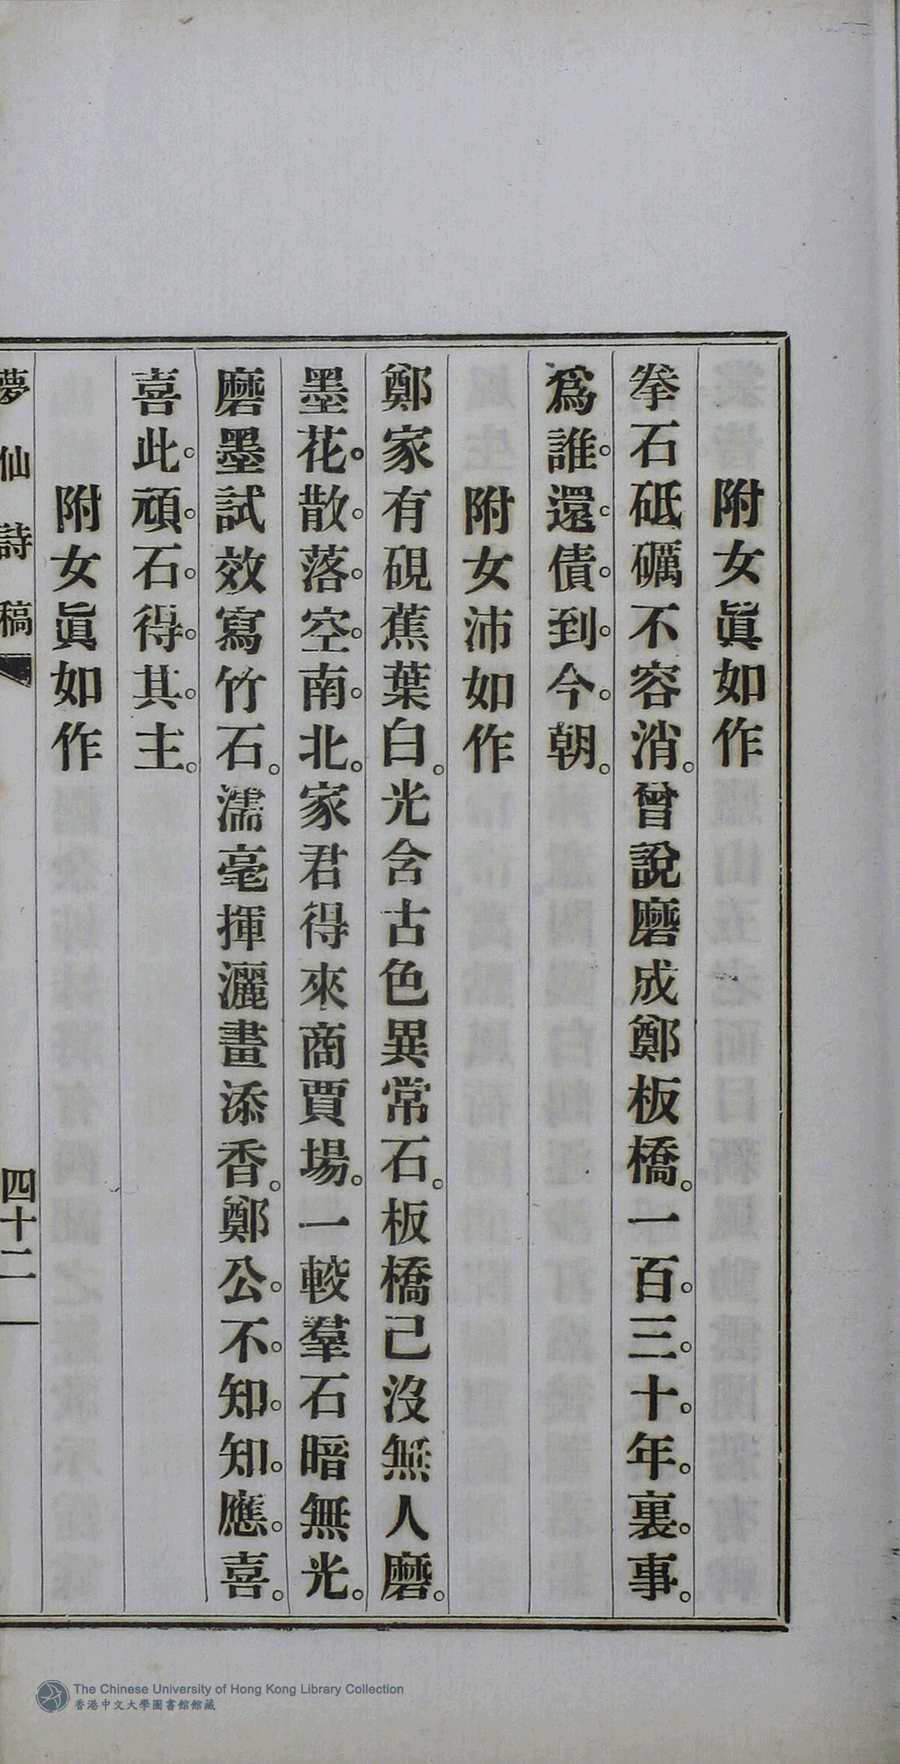 附女眞如作
拳石砥礪不容消。曾說磨成鄭板橋。一百。三。十。年。裏。事。
爲誰。還。債。到。今。朝。
附女沛如作
鄭家有硯蕉葉白。光含古色異常石。板橋已沒無人磨。
墨花。散。落。空。南。北。家君得來商賈場。一較羣石暗無光。
磨墨試效寫竹石。濡毫揮灑畫添香。鄭公。不。知。知。應。喜。
喜此。頑。石。得。其。主。
附女眞如作
夢仙詩稿
四十二
The Chinese University of Hong Kong Library Collection
香港中文大學圖書館館藏